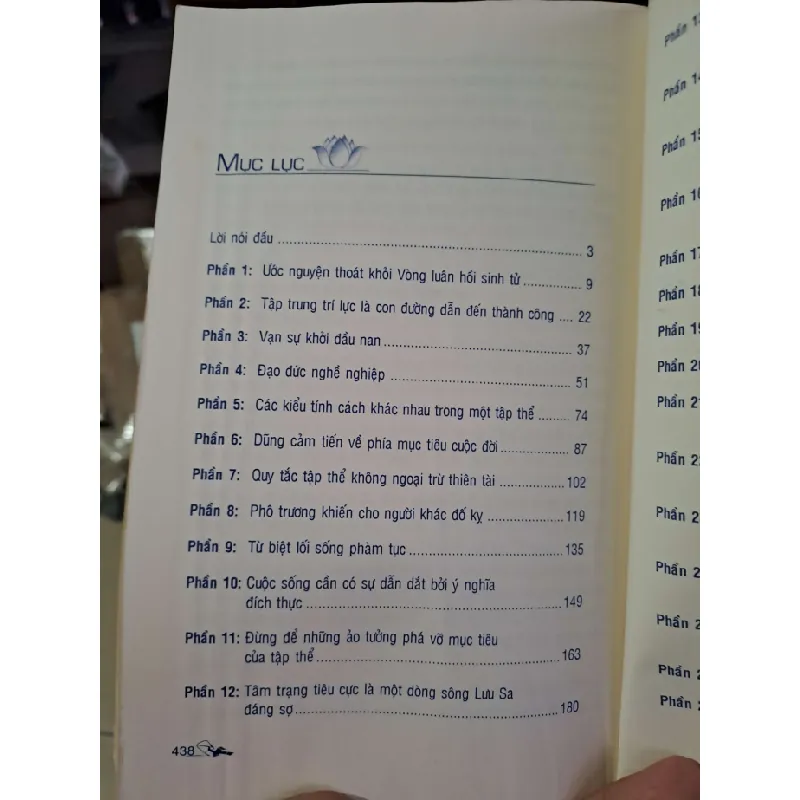 MỤC LỤC
Lời nói đầu ........ 3
Phần 1: Ước nguyện thoát khỏi Vòng luân hồi sinh tử ........ 9
Phần 2: Tập trung trí lực là con đường dẫn đến thành công .... 22
Phần 3: Vạn sự khởi đầu nan ........ 37
Phần 4: Đạo đức nghề nghiệp ........ 51
Phần 5: Các kiểu tính cách khác nhau trong một tập thể ........ 74
Phần 6: Dũng cảm tiến về phía mục tiêu cuộc đời ........ 87
Phần 7: Quy tắc tập thể không ngoại trừ thiên tài ........ 102
Phần 8: Phô trương khiến cho người khác đố kỵ ........ 119
Phần 9: Từ biệt lối sống phàm tục ........ 135
Phần 10: Cuộc sống cần có sự dẫn dắt bởi ý nghĩa
đích thực ........ 149
Phần 11: Đừng để những ảo tưởng phá vỡ mục tiêu
của tập thể ........ 163
Phần 12: Tâm trạng tiêu cực là một dòng sông Lưu Sa
đáng sợ ........ 180
438
Phần 13
Phần 14
Phần 15
Phần 16
Phần 17
Phần 18
Phần 19
Phần 20
Phần 21
Phần 2
Phần 2
Phần 2
Phần 2
Phần 2
Phần 2